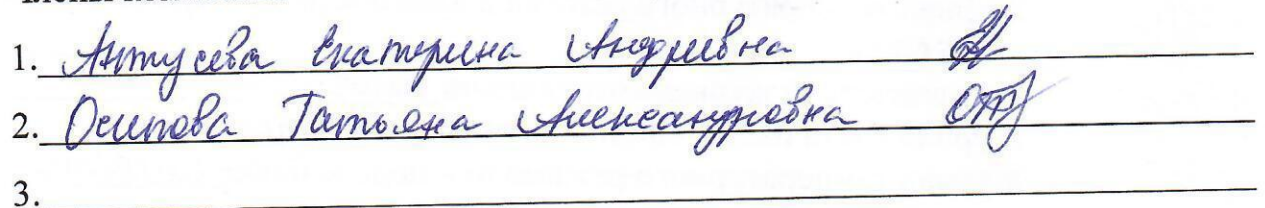 1. Антусева Екатерина Андреевна
2. Осипова Татьяна Александровна
3.